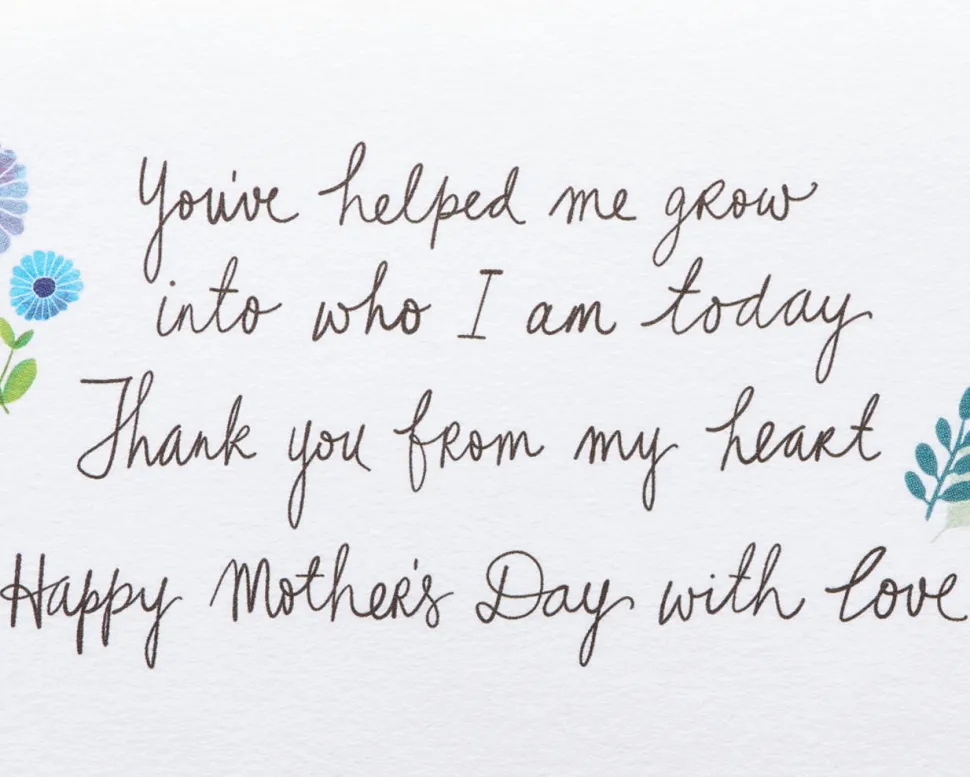 You've helped me grow
into who I am today
Thank you from my heart
Happy Mother's Day with love